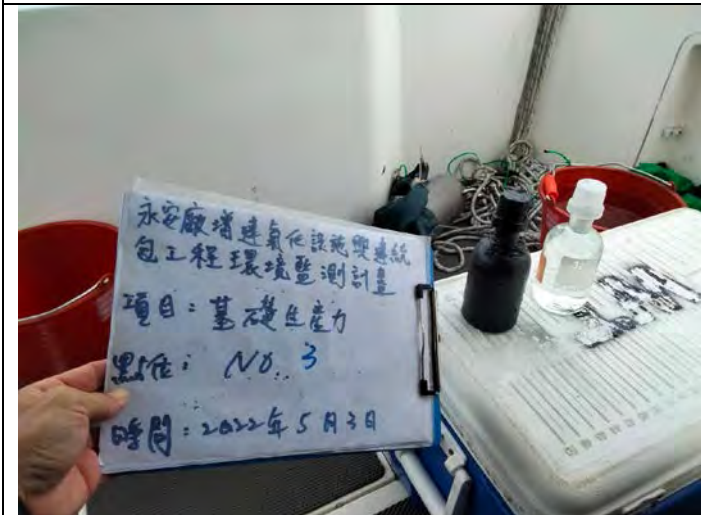 永安廠增建氣化設施興建統
包工程環境監測計畫
項目：基礎生產力
點位：NO. 3
時間：2022年5月3日